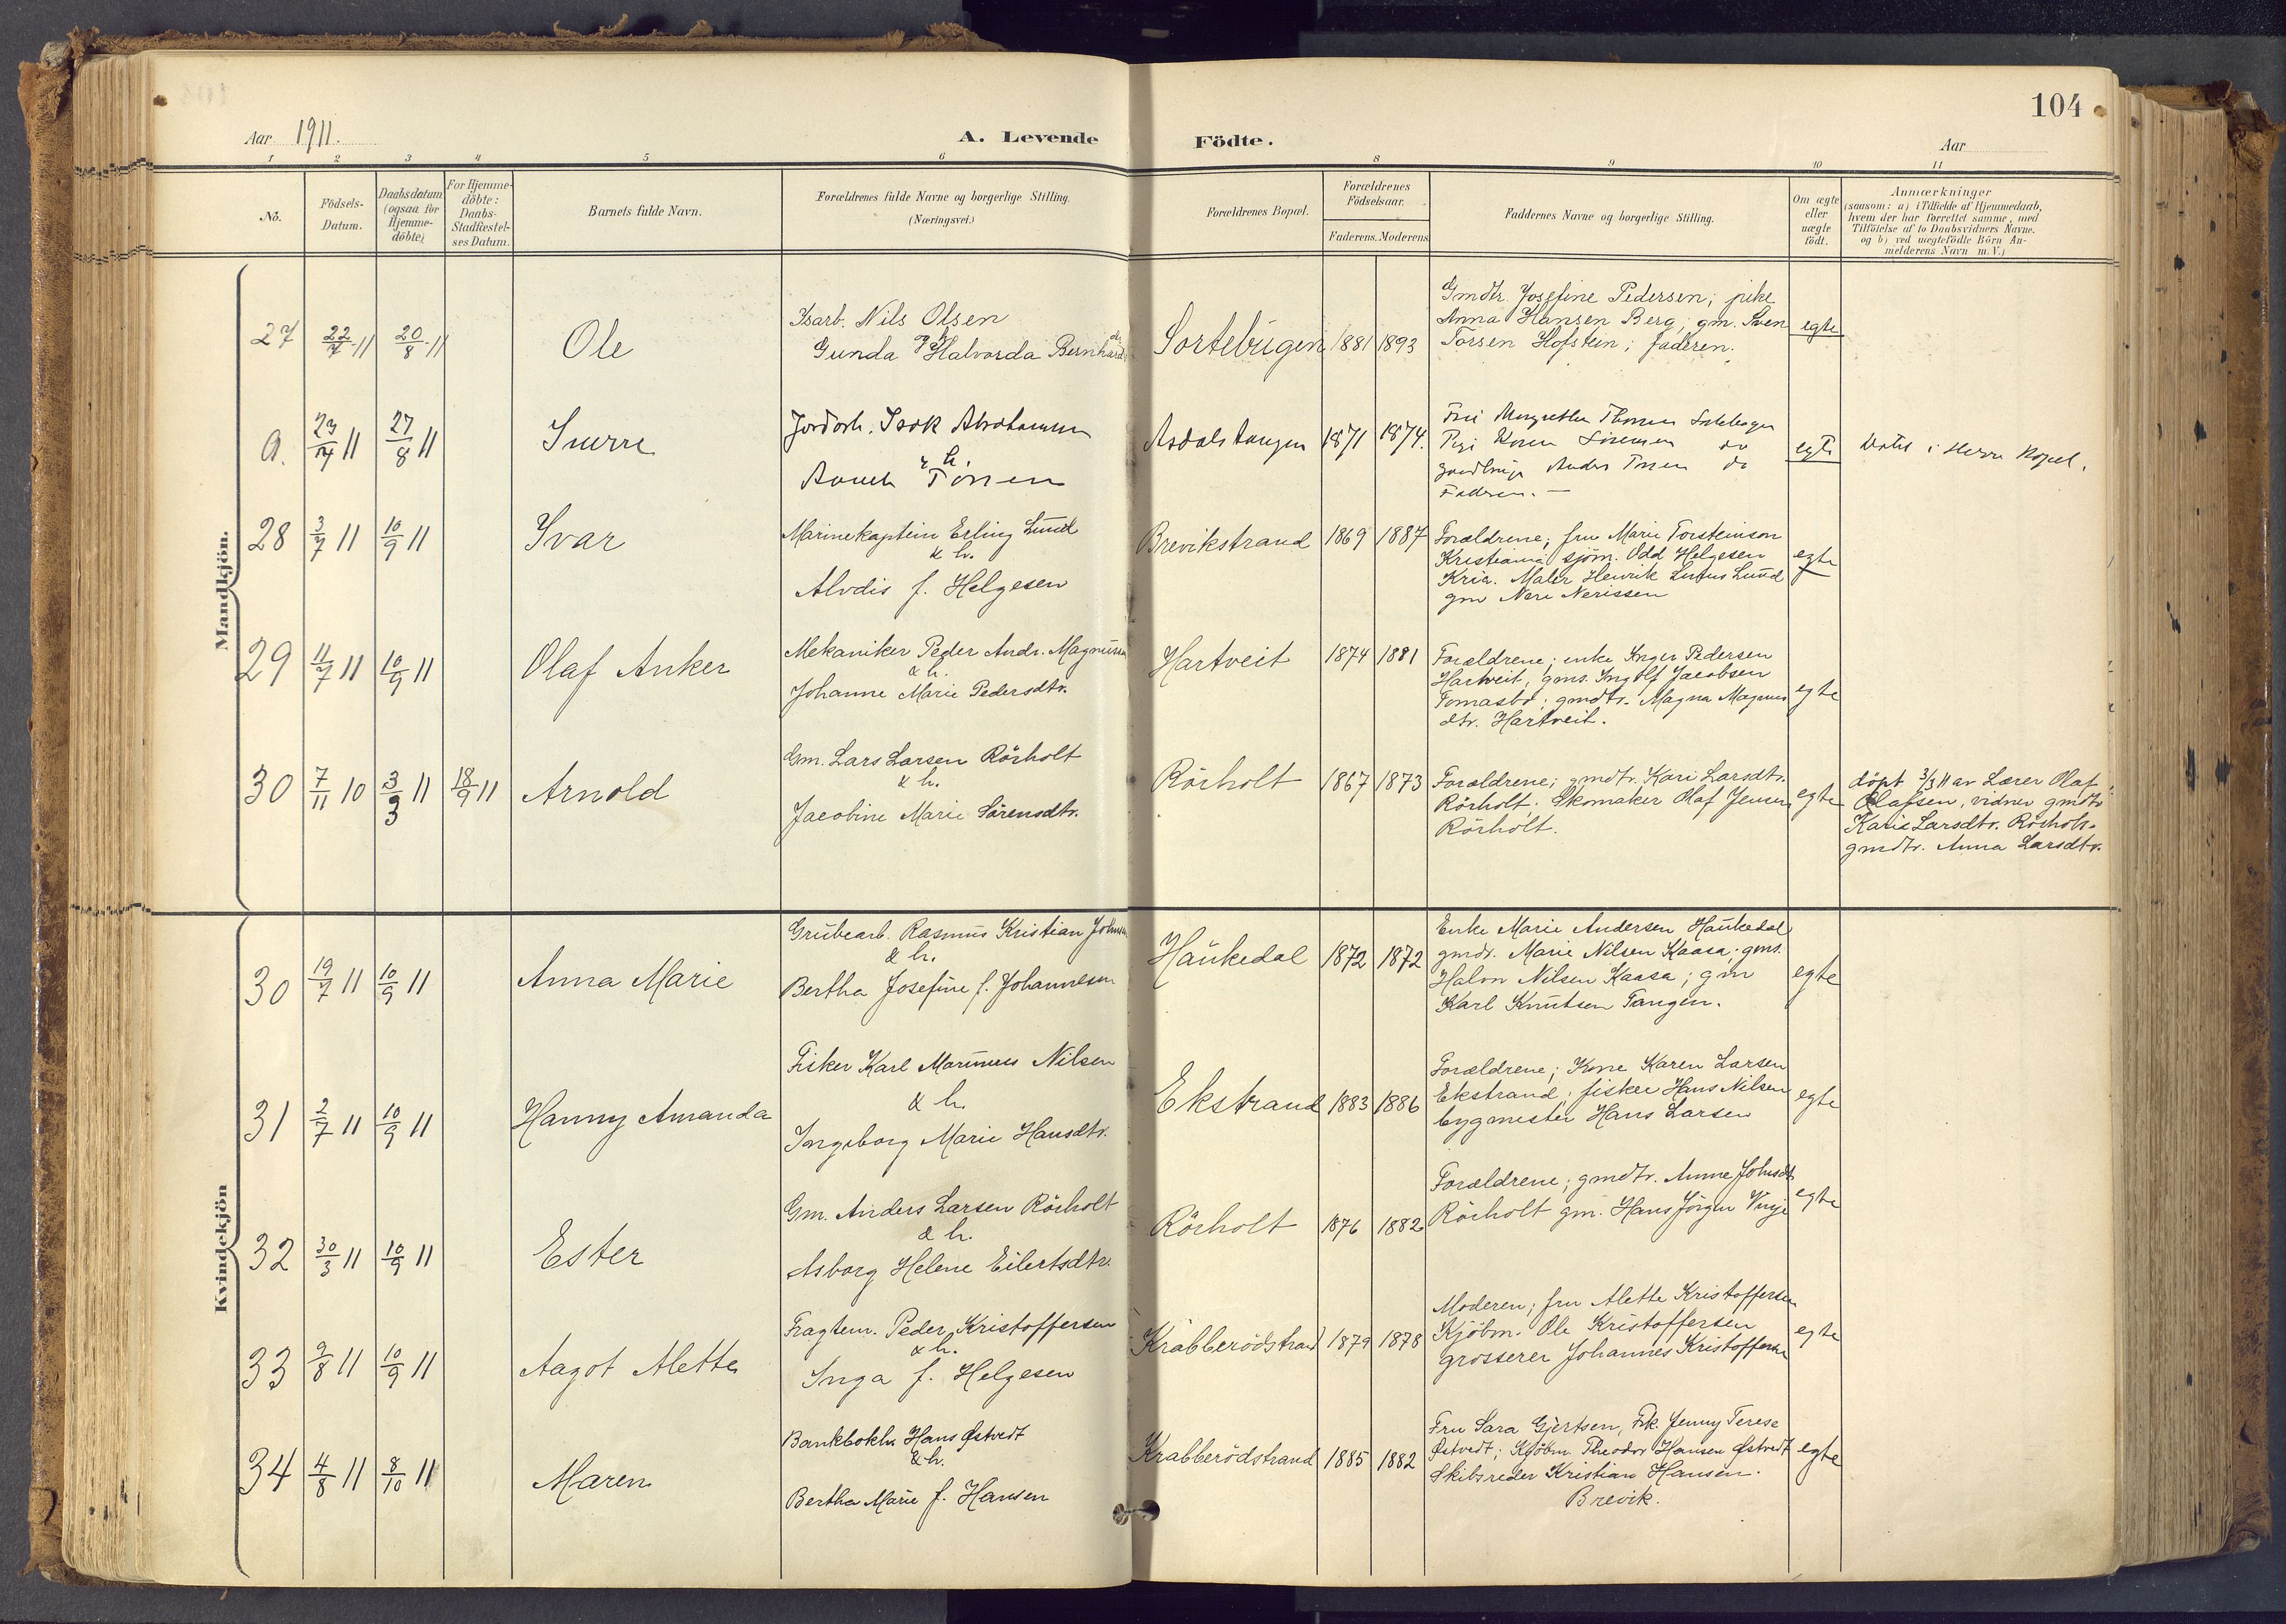 104
Aar 1911.
A. Levende Födte.
Aar
1 2 3 4 5 6 8 9 10 11
No.
Födsels-
Datum.
Daabsdatum
(ogsaa for
Hjemme-
döbte)
For Hjemme-
döbte:
Daabs-
Stadfæstel-
ses Datum.
Barnets fulde Navn.
Forældrenes fulde Navne og borgerlige Stilling.
(Næringsvei.)
Forældrenes Bopæl.
Forældrenes
Födselsaar.
Faderens. Moderens.
Faddernes Navne og borgerlige Stilling.
Om ægte
eller
uægte
födt.
Anmærkninger
(saasom: a) i Tilfælde af Hjemmedaab,
hvem der har forrettet samme, med
Tilföielse af to Daabsvidners Navne.
og b) ved uægtefödte Börn An-
melderens Navn m. V.)
Mandkjön.
27 22/7 11 20/8 11 Ole
Isarb. Nils Olsen
& h.
Gunda Halvorda Bernhard
Sortebugen 1881 1893
Gmdtr. Josefine Pedersen; pike
Anna Hansen Berg; gm. Sven
Torsen Hofstein; faderen.
egte
a. 23/4 11 27/8 11
Isak
& h.
1871 1874.
Thomsen
Anders
Faderen.
egte
i
28 3/7 11 10/9 11 Ivar
Marinekaptein Erling Lund
& h.
Alvdis f. Helgesen
Brevikstrand 1869 1887
Forældrene; fru Marie Torsteinson
Kristiania sjöm. Odd Helgesen
Kria. Maler Henrik Lund
gm Nere Nerissen
egte
29 11/7 11 10/9 11 Olaf Anker
Mekaniker Peder Andr. Magnussen
& h.
Johanne Marie Pedersdtr.
Hartveit 1874 1881
Forældrene; enke Inger Pedersen
Hartveit, gms. Ingolf Jacobsen
Tomasbo; gmdtr. Magna Magnus
dtr. Hartveit.
egte
30 7/11 10 3/3 11 18/9 11 Arnold
Gm. Lars Larsen Rörholt
& h.
Jacobine Marie Sörensdtr.
Rörholt 1867 1873
Forældrene; gmdtr. Kari Larsdtr.
Rörholt. Skomaker Olaf Jensen
Rörholt.
egte
döpt 3/3 11 av Lærer Olaf
Olafsen, vidner gmdtr
Karie Larsdtr. Rörholt.
gmdtr. Anna Larsdtr.
Kvindekjön
30 19/7 11 10/9 11 Anna Marie
Grubearb. Rasmus Kristian Johnsen
& h.
Bertha Josefine f. Johannesen
Haukedal 1872 1872
Enke Marie Andersen Haukedal
gmdr. Marie Nilsen Kaasa; gms.
Halvor Nilsen Kaasa; gm
Karl Knutsen Tangen.
egte
31 2/7 11 10/9 11 Hanny Amanda
Fisker Karl Marinius Nilsen
& h.
Ingeborg Marie Hansdtr.
Ekstrand 1883 1886
Forældrene; Kone Karen Larsen
Ekstrand; fisker Hans Nilsen
bygmester Hans Larsen
egte
32 30/3 11 10/9 11 Ester
Gm. Anders Larsen Rörholt
& h.
Asborg Helene Eilertsdtr.
Rörholt 1876 1882
Forældrene; gmdtr. Anne Johnsdtr
Rörholt gm. Hans Jörgen Vinje
egte
33 9/8 11 10/9 11 Aagot Alette
Fragtem. Peder Kristoffersen
& h.
Inga f. Helgesen
Krabberödstrand 1879 1878
Moderen; fru Alette Kristoffersen
Kjöbm. Ole Kristoffersen
grosserer Johannes Kristoffersen
egte
34 4/8 11 8/10 11 Maren
Bankbokh. Hans Østvedt
& h.
Bertha Marie f. Hansen
Krabberödstrand 1885 1882
Fru Sara Gjertsen, Frk. Jenny Terese
Østvedt; Kjöbm. Theodor Hansen Østvedt
Skibsreder Kristian Hansen.
Brevik.
egte